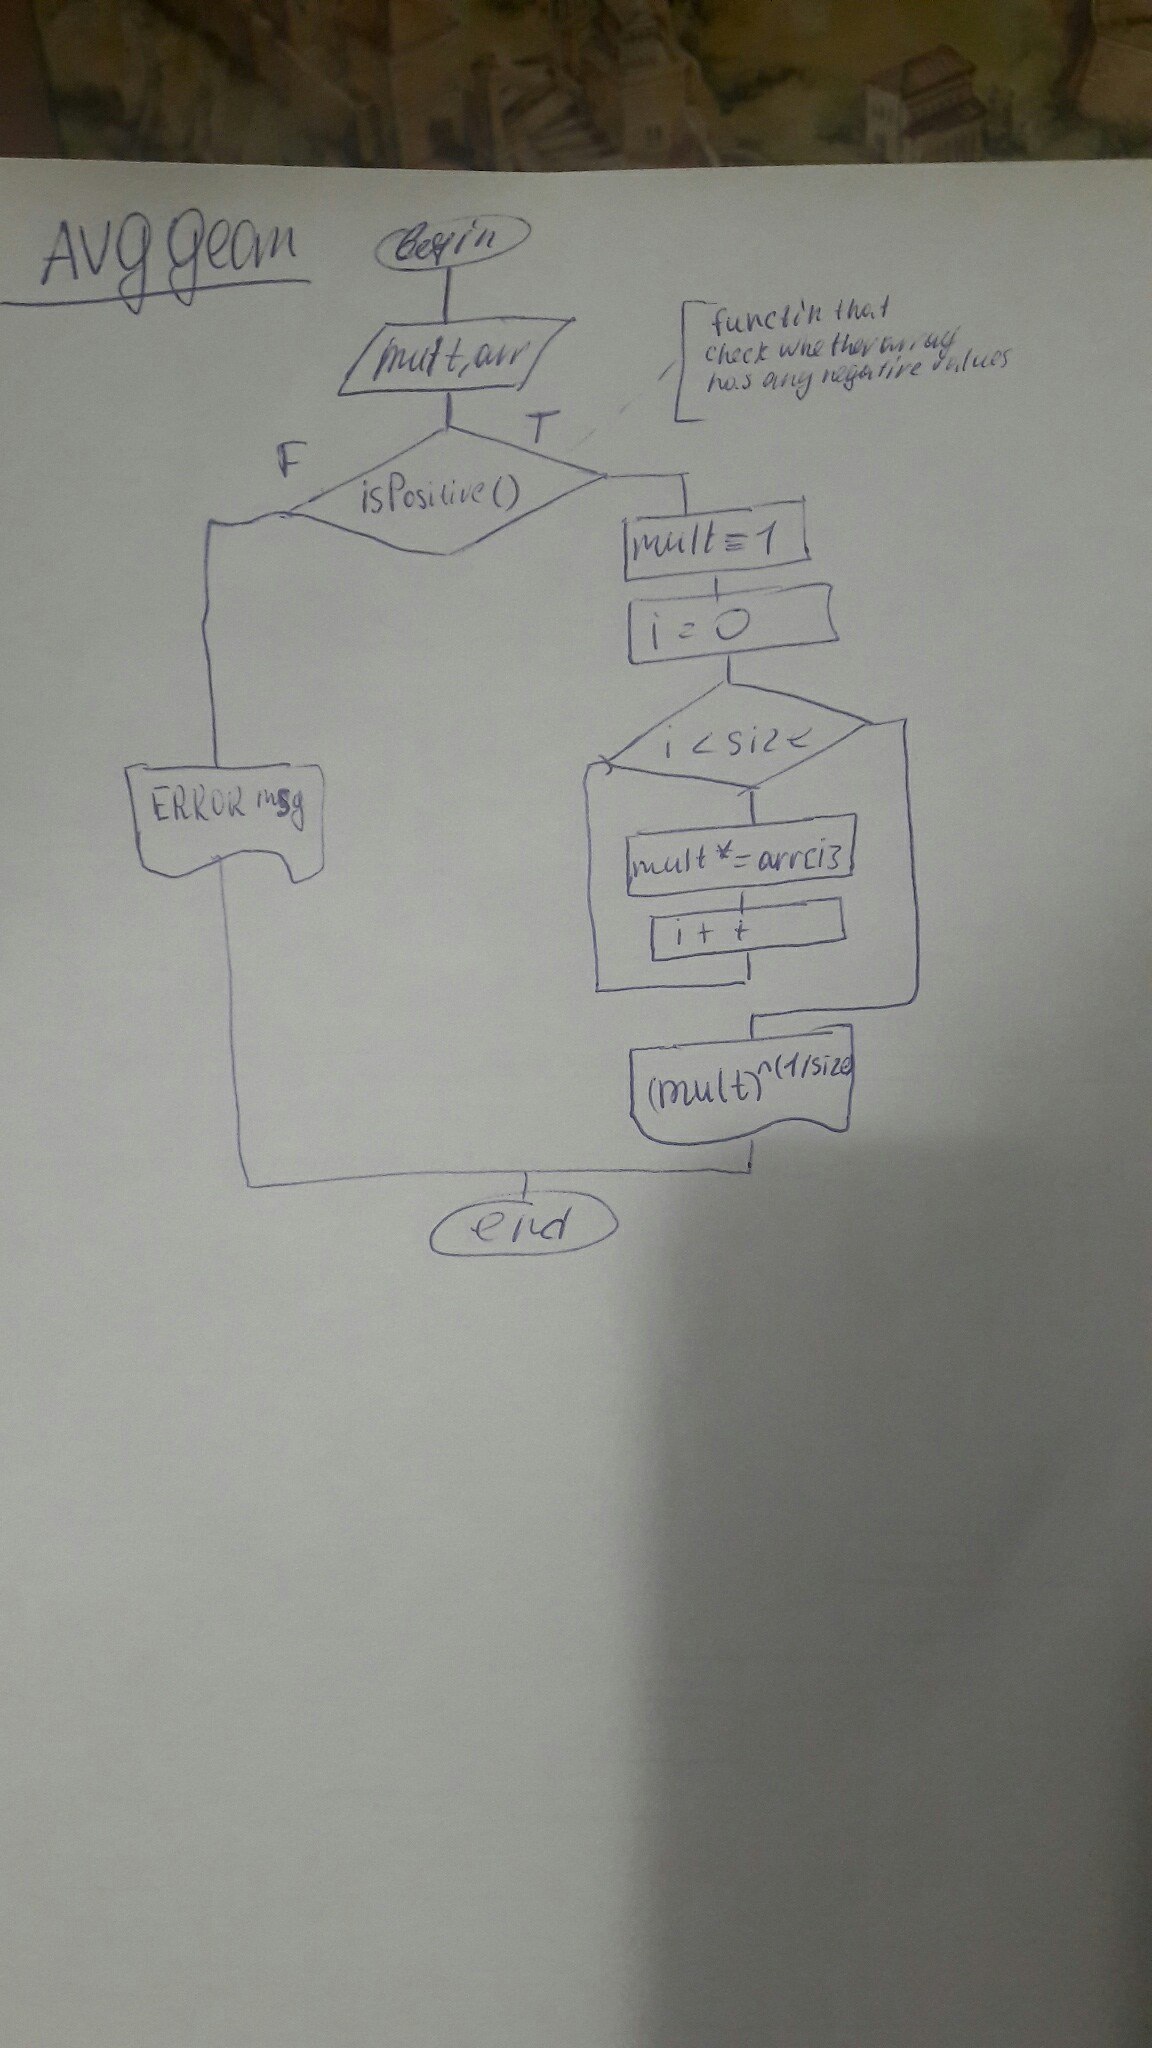 AVG geom
begin
mult, arr
functin that
check whether array
has any negative values
F
T
isPositive()
mult = 1
i = 0
i < size
ERROR msg
mult *= arr[i]
i++
(mult)^(1/size)
end